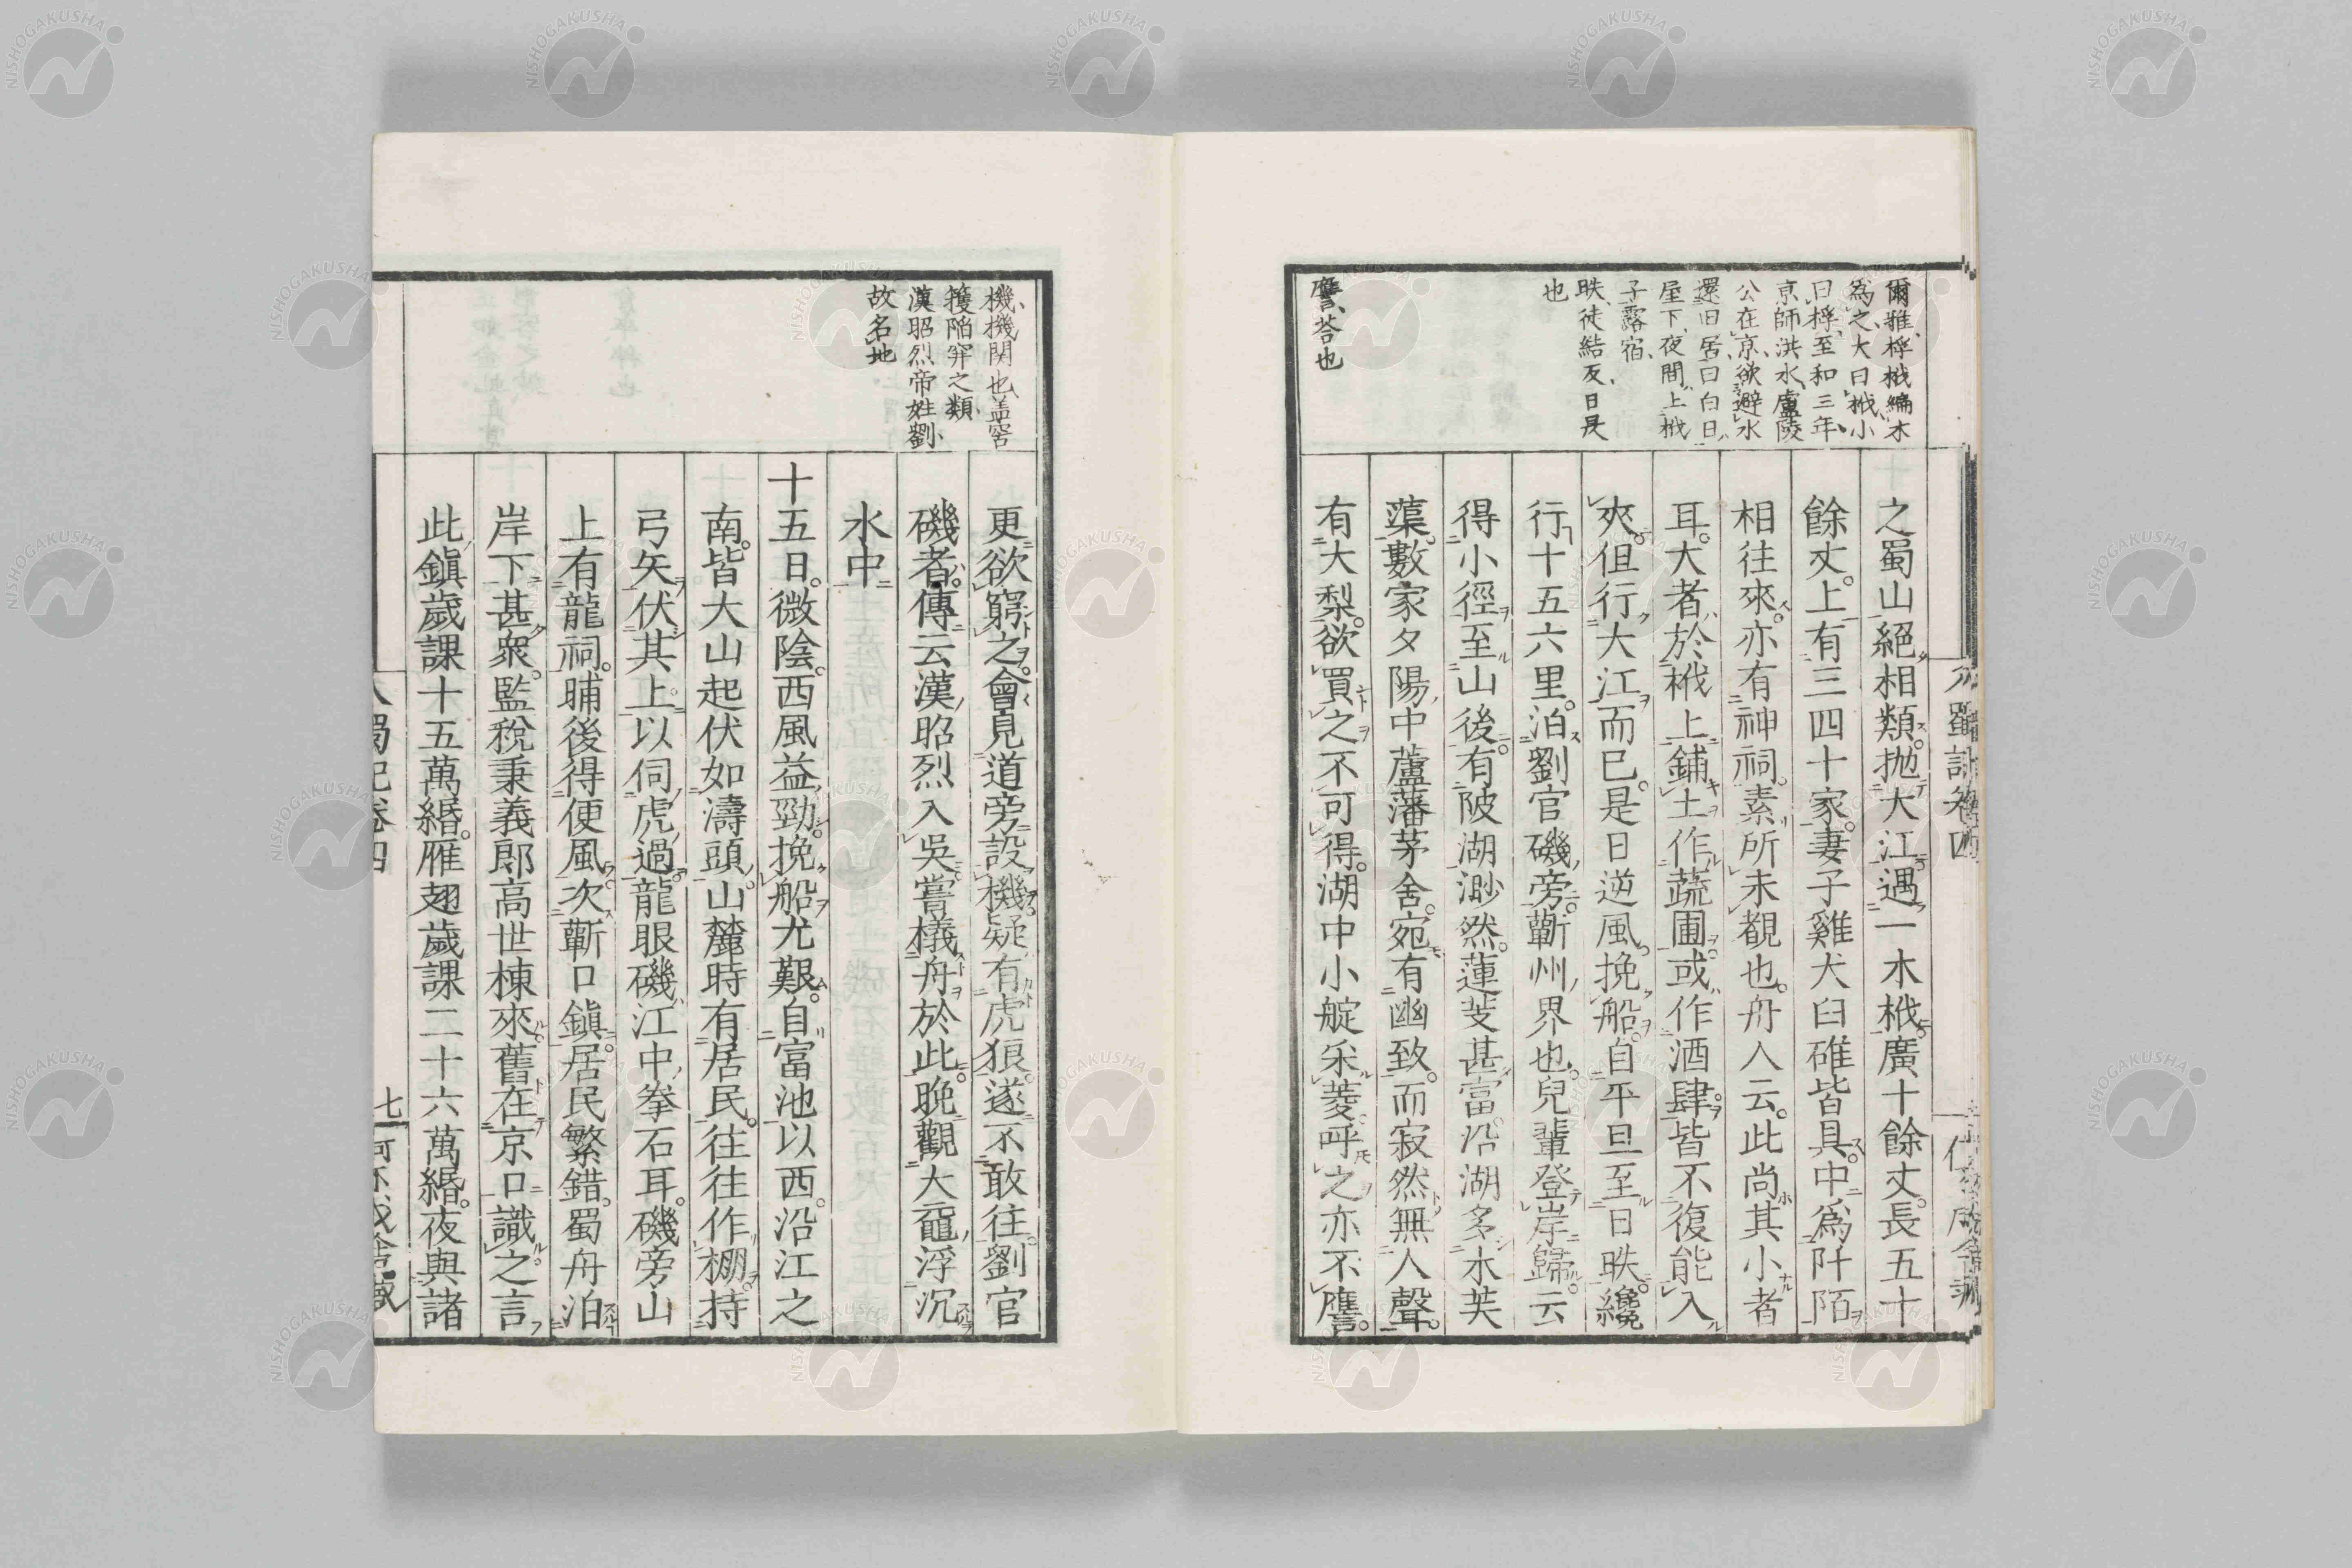 爾雅桴栰編木
爲之大曰栰小
曰桴至和三年
京師洪水廬陵
公在京欲避水
還旧居曰白日
屋下夜間上栰
子露宿
昳徒結反日昃
也
譍荅也
之蜀山絕相類抛大江遇一木栰廣十餘丈長五十
餘丈上有三四十家妻子雞犬臼碓皆具中爲阡陌
相往來亦有神祠素所未覩也舟人云此尚其小者
耳大者於栰上鋪土作蔬圃或作酒肆皆不復能入
夾但行大江而已是日逆風挽船自平旦至日昳纔
行十五六里泊劉官磯旁蘄州界也兒輩登岸歸云
得小徑至山後有陂湖渺然蓮芰甚富沿湖多木芙
蕖數家夕陽中蘆藩茅舍宛有幽致而寂然無人聲
有大梨欲買之不可得湖中小艇采菱呼之亦不譍
機機関也盖窖
獲陥穽之類
漢昭烈帝姓劉
故名地
更欲窮之會見道旁設機疑有虎狼遂不敢往劉官
磯者傳云漢昭烈入吳嘗檥舟於此晚觀大黿浮沉
水中
十五日微陰西風益勁挽船尤艱自富池以西沿江之
南皆大山起伏如濤頭山麓時有居民往往作棚持
弓矢伏其上以伺虎過龍眼磯江中拳石耳磯旁山
上有龍祠晡後得便風次蘄口鎭居民繁錯蜀舟泊
岸下甚衆監稅秉義郎高世棟來舊在京口識之言
此鎭歲課十五萬緡雁翅歲課二十六萬緡夜與諸
入蜀記卷四
七